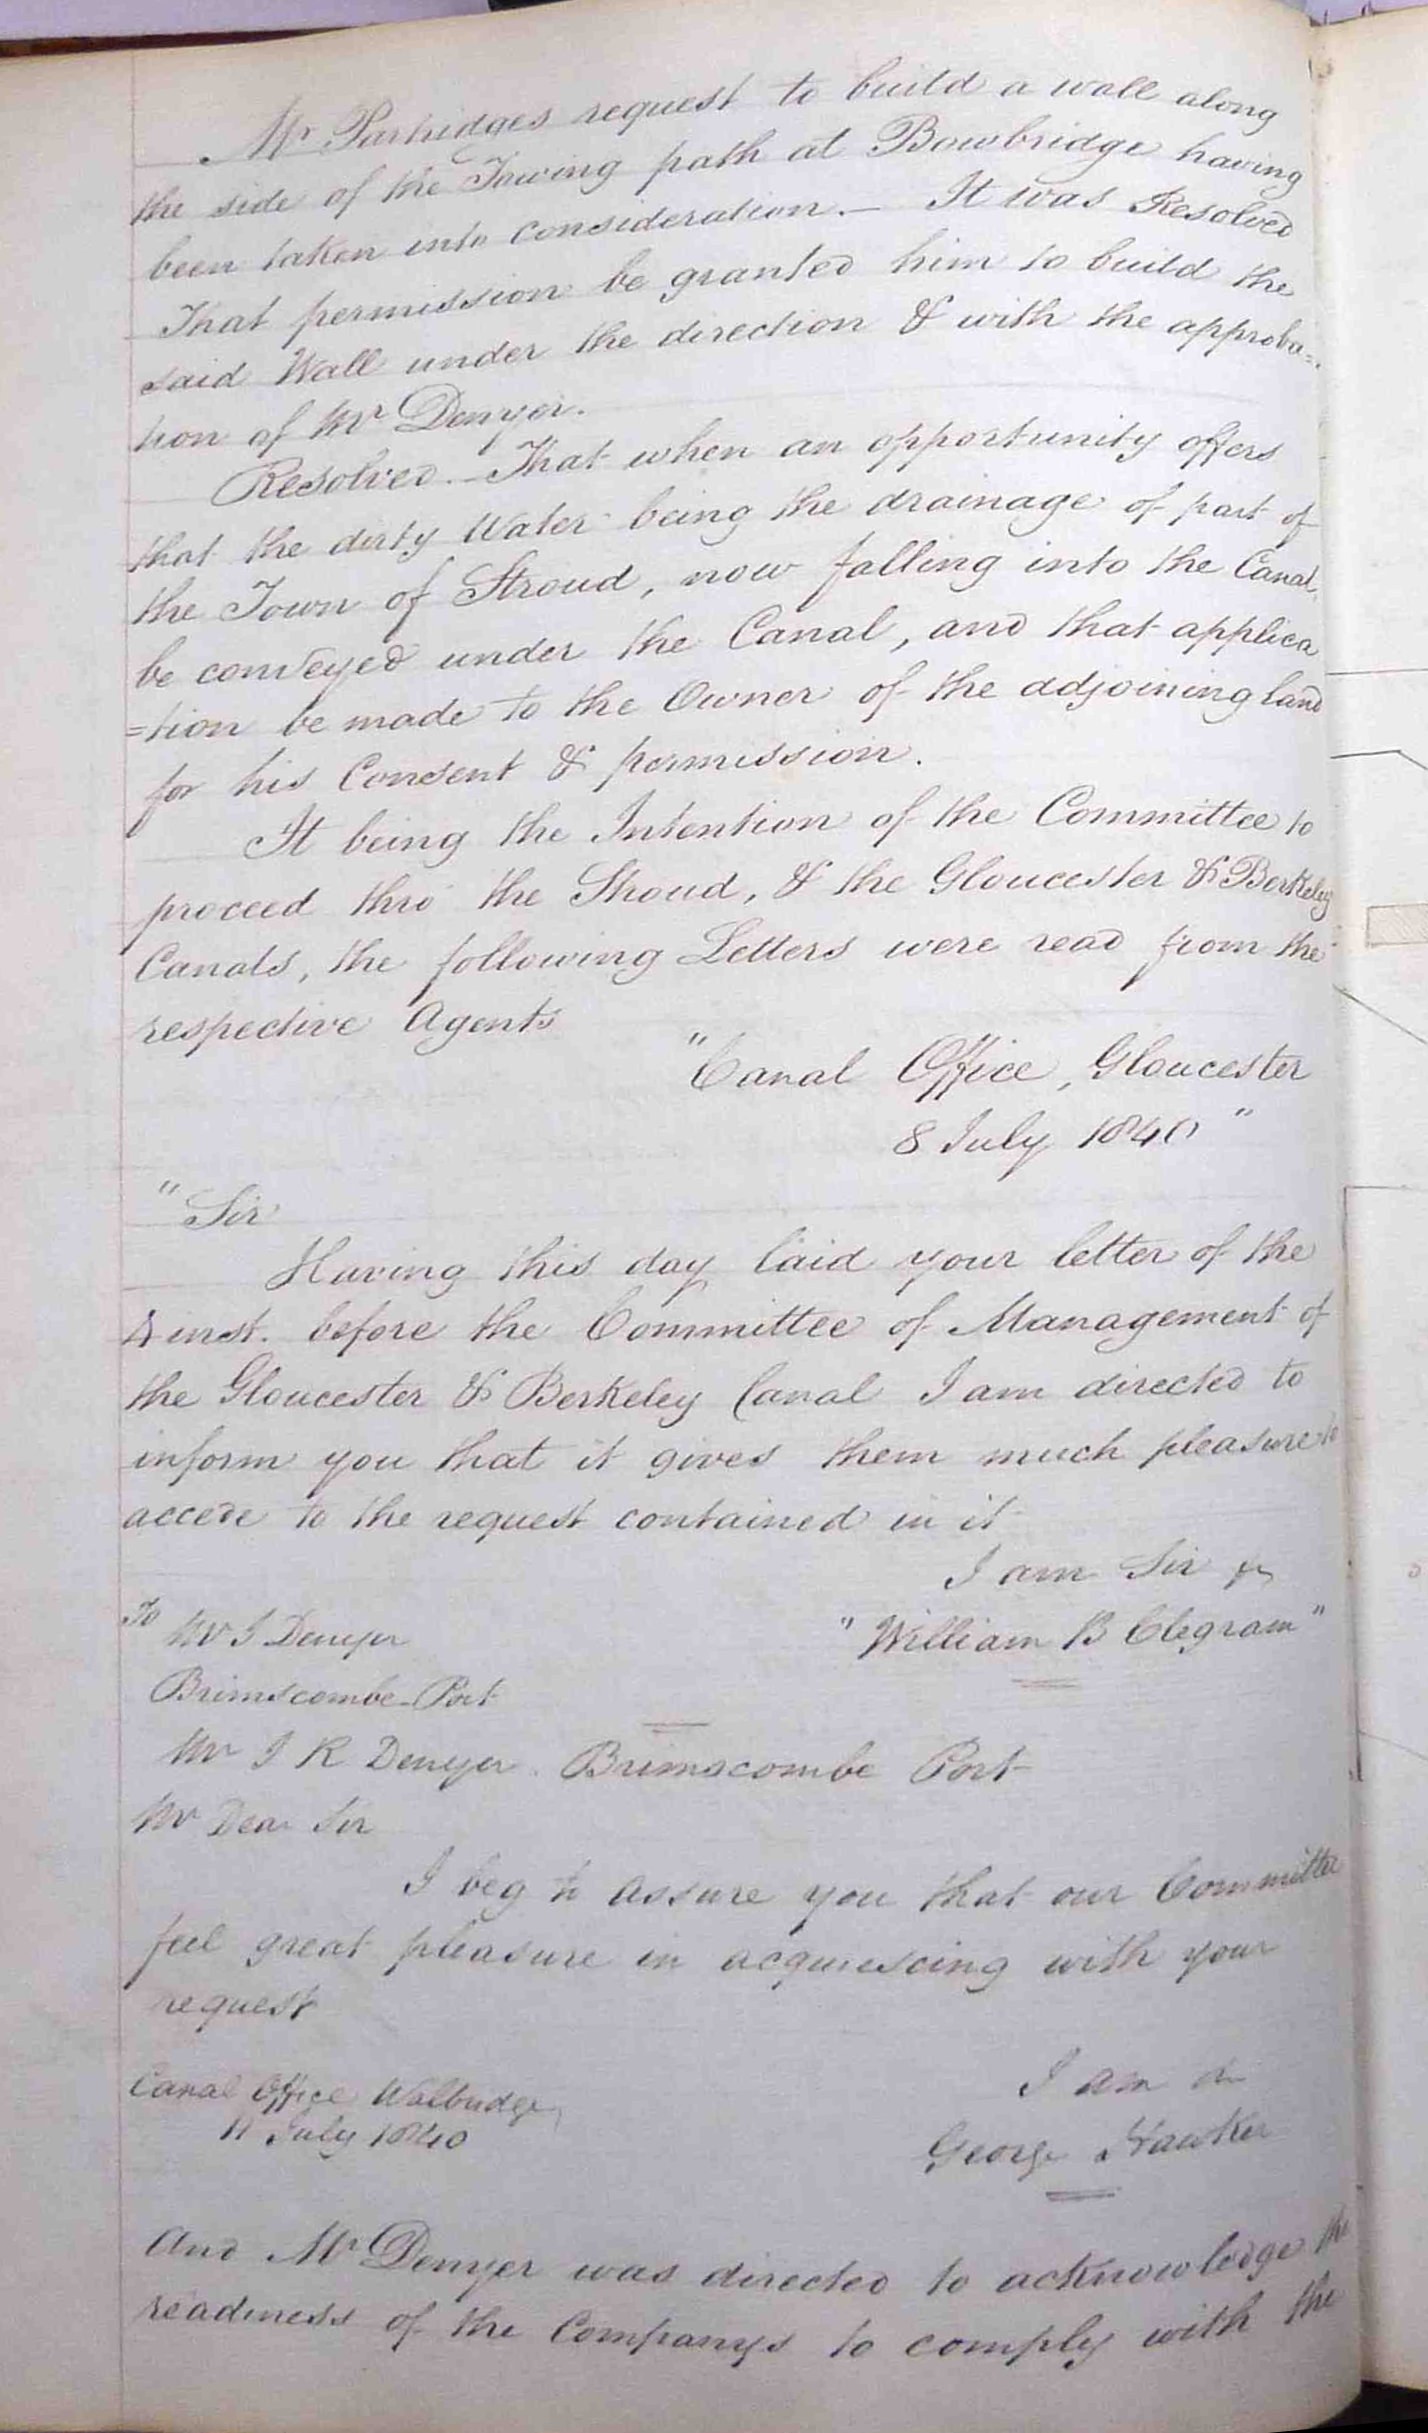 Mr Partridges request to build a wall along
the side of the Towing path at Bowbridge having
been taken into consideration. — It was Resolved
That permission be granted him to build the
said Wall under the direction & with the approba=
tion of Mr Denyer.
Resolved. — That when an opportunity offers
that the dirty Water being the drainage of part of
the Town of Stroud, now falling into the Canal,
be conveyed under the Canal, and that applica
=tion be made to the Owner of the adjoining land
for his Consent & permission.
It being the Intention of the Committee to
proceed thro' the Stroud, & the Gloucester & Berkeley
Canals, the following Letters were read from the
respective Agents
"Canal Office, Gloucester
8 July 1840"
"Sir
Having this day laid your letter of the
4 inst. before the Committee of Management of
the Gloucester & Berkeley Canal I am directed to
inform you that it gives them much pleasure to
accede to the request contained in it
I am Sir &c
To Mr J Denyer
"William B Clegram"
Brimscombe Port
Mr J R Denyer Brimscombe Port
Mr Dear Sir
I beg to assure you that our Committee
feel great pleasure in acquiescing with your
request
I am &c
Canal Office Wallbridge
11 July 1840
George Hawker
And Mr Denyer was directed to acknowledge the
readiness of the Companys to comply with the